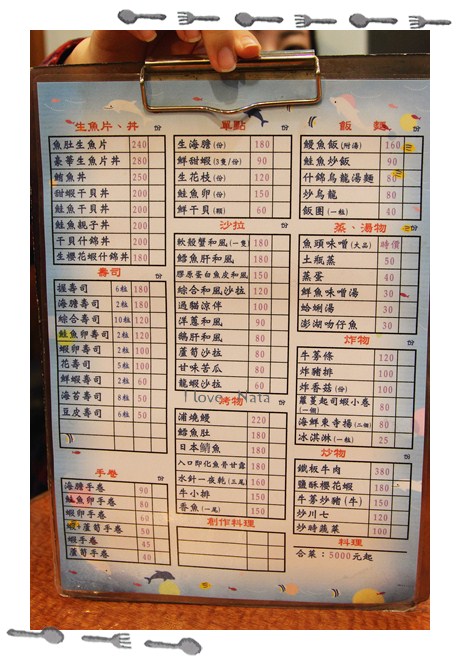 生魚片、丼 份
魚肚生魚片 240
豪華生魚片丼 280
鮪魚丼 250
甜蝦干貝丼 200
鮭魚干貝丼 200
鮭魚親子丼 200
干貝什錦丼 200
生櫻花蝦什錦丼 180
壽司 份
握壽司 6粒 180
海膽壽司 2粒 180
綜合壽司 10粒 120
鮭魚卵壽司 2粒 100
蝦卵壽司 2粒 100
花壽司 5粒 100
鮮蝦壽司 2粒 60
海苔壽司 8粒 50
豆皮壽司 6粒 50
手卷 份
海膽手卷 90
鮭魚卵手卷 60
蝦卵手卷 60
蝦+蘆荀手卷 50
蝦手卷 45
蘆荀手卷 40
單點 份
生海膽(份) 180
鮮甜蝦(3隻/份) 90
生花枝(份) 120
鮭魚卵(份) 150
鮮干貝(顆) 60
沙拉
軟殼蟹和風(一隻) 180
鱈魚肝和風 180
膠原蛋白魚皮和風 150
綜合和風沙拉 120
過貓涼伴 100
洋蔥和風 90
鵝肝和風 80
蘆荀沙拉 80
甘味苦瓜 80
龍蝦沙拉 60
I love Nata
烤物
浦燒鰻 220
鱈魚肚 180
日本鯖魚 180
入口即化魚骨甘露 180
水針一夜乾(三尾) 160
牛小排 150
香魚(一尾) 150
創作料理
飯 麵 份
鰻魚飯(附湯) 160
鮭魚炒飯 90
什錦烏龍湯麵 80
炒烏龍 80
飯團(一粒) 40
蒸、湯物
魚頭味噌(大品) 時價
土瓶蒸 50
蒸蛋 40
鮮魚味噌湯 30
蛤蜊湯 30
澎湖吻仔魚 30
炸物
牛蒡條 120
炸豬排 100
炸香菇(份) 100
蘿蔓起司蝦小卷(一個) 80
海鮮東寺揚(三個) 80
冰淇淋(一粒) 25
炒物
鐵板牛肉 380
鹽酥櫻花蝦 180
牛蒡炒豬(牛) 150
炒川七 120
炒時蔬菜 100
料理
合菜：5000元起